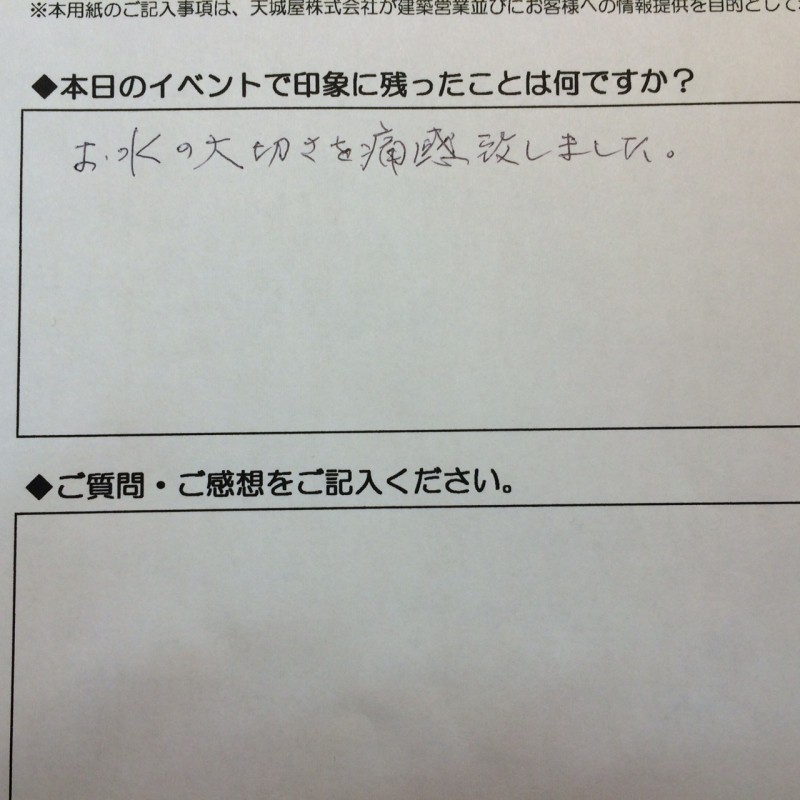 ※本用紙のご記入事項は、天城屋株式会社が建築営業並びにお客様への情報提供を目的として
◆本日のイベントで印象に残ったことは何ですか？
お水の大切さを痛感致しました。
◆ご質問・ご感想をご記入ください。